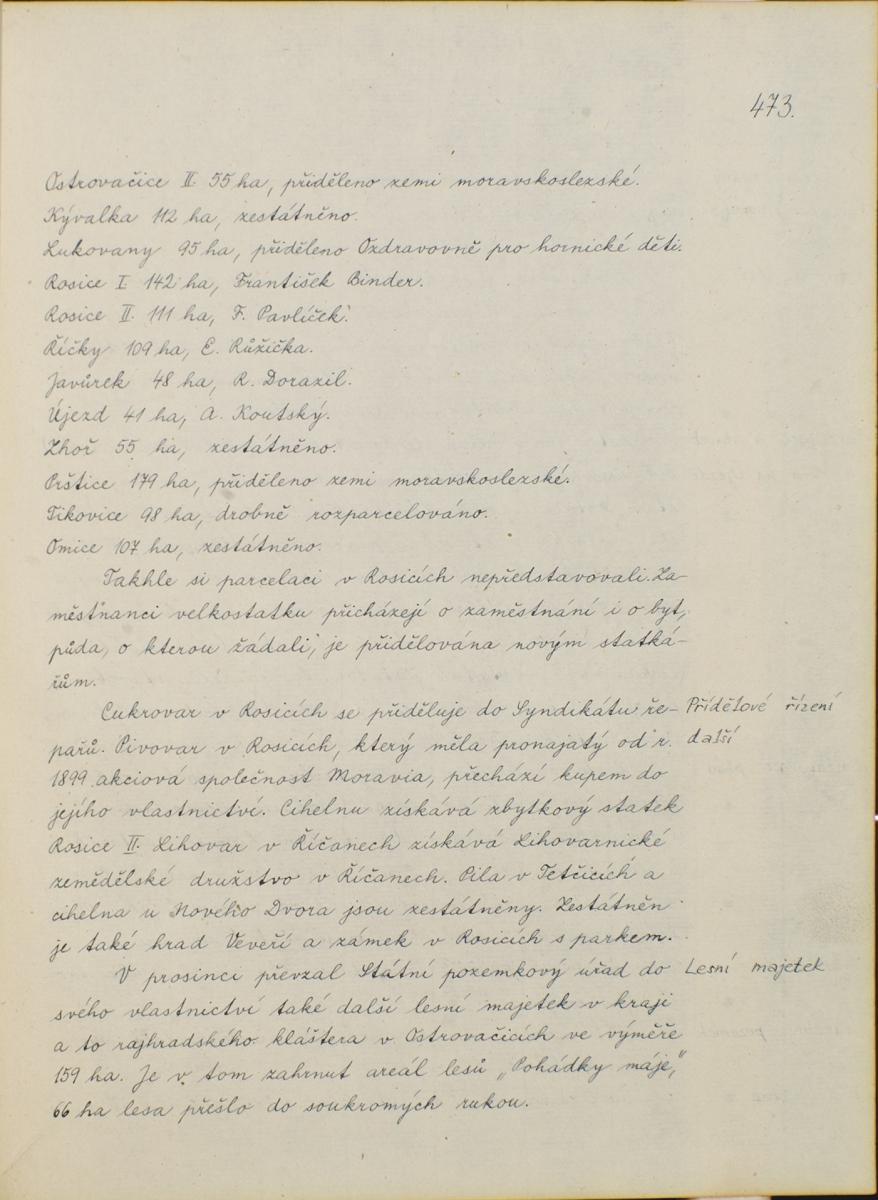 473.
Ostrovačice II. 55 ha, přiděleno zemi moravskoslezské.
Kývalka 112 ha, zestátněno.
Lukovany 95 ha, přiděleno Ozdravovně pro hornické děti.
Rosice I. 142 ha, František Binder.
Rosice II. 111 ha, F. Pavlíček.
Říčky 109 ha, E. Růžička.
Javůrek 48 ha, R. Dorazil.
Újezd 41 ha, A. Koutský.
Zhoř 55 ha, zestátněno.
Prštice 179 ha, přiděleno zemi moravskoslezské.
Tikovice 98 ha, drobně rozparcelováno.
Omice 107 ha, zestátněno.
Takhle si parcelaci v Rosicích nepředstavovali. Za-
městnanci velkostatku přicházejí o zaměstnání i o byt,
půda, o kterou žádali, je přidělována novým statká-
řům.
Cukrovar v Rosicích se přiděluje do Syndikátu ře- Přídělové řízení
pařů. Pivovar v Rosicích, který měla pronajatý od r. další
1899 akciová společnost Moravia, přechází kupem do
jejího vlastnictví. Cihelnu získává zbytkový statek
Rosice II. Lihovar v Říčanech získává Lihovarnické
zemědělské družstvo v Říčanech. Pila v Tetčicích a
cihelna u Nového Dvora jsou zestátněny. Zestátněn
je také hrad Veveří a zámek v Rosicích s parkem.
V prosinci převzal Státní pozemkový úřad do Lesní majetek
svého vlastnictví také další lesní majetek v kraji
a to rajhradského kláštera v Ostrovačicích ve výměře
159 ha. Je v tom zahrnut areál lesů „Pohádky máje,"
66 ha lesa přešlo do soukromých rukou.